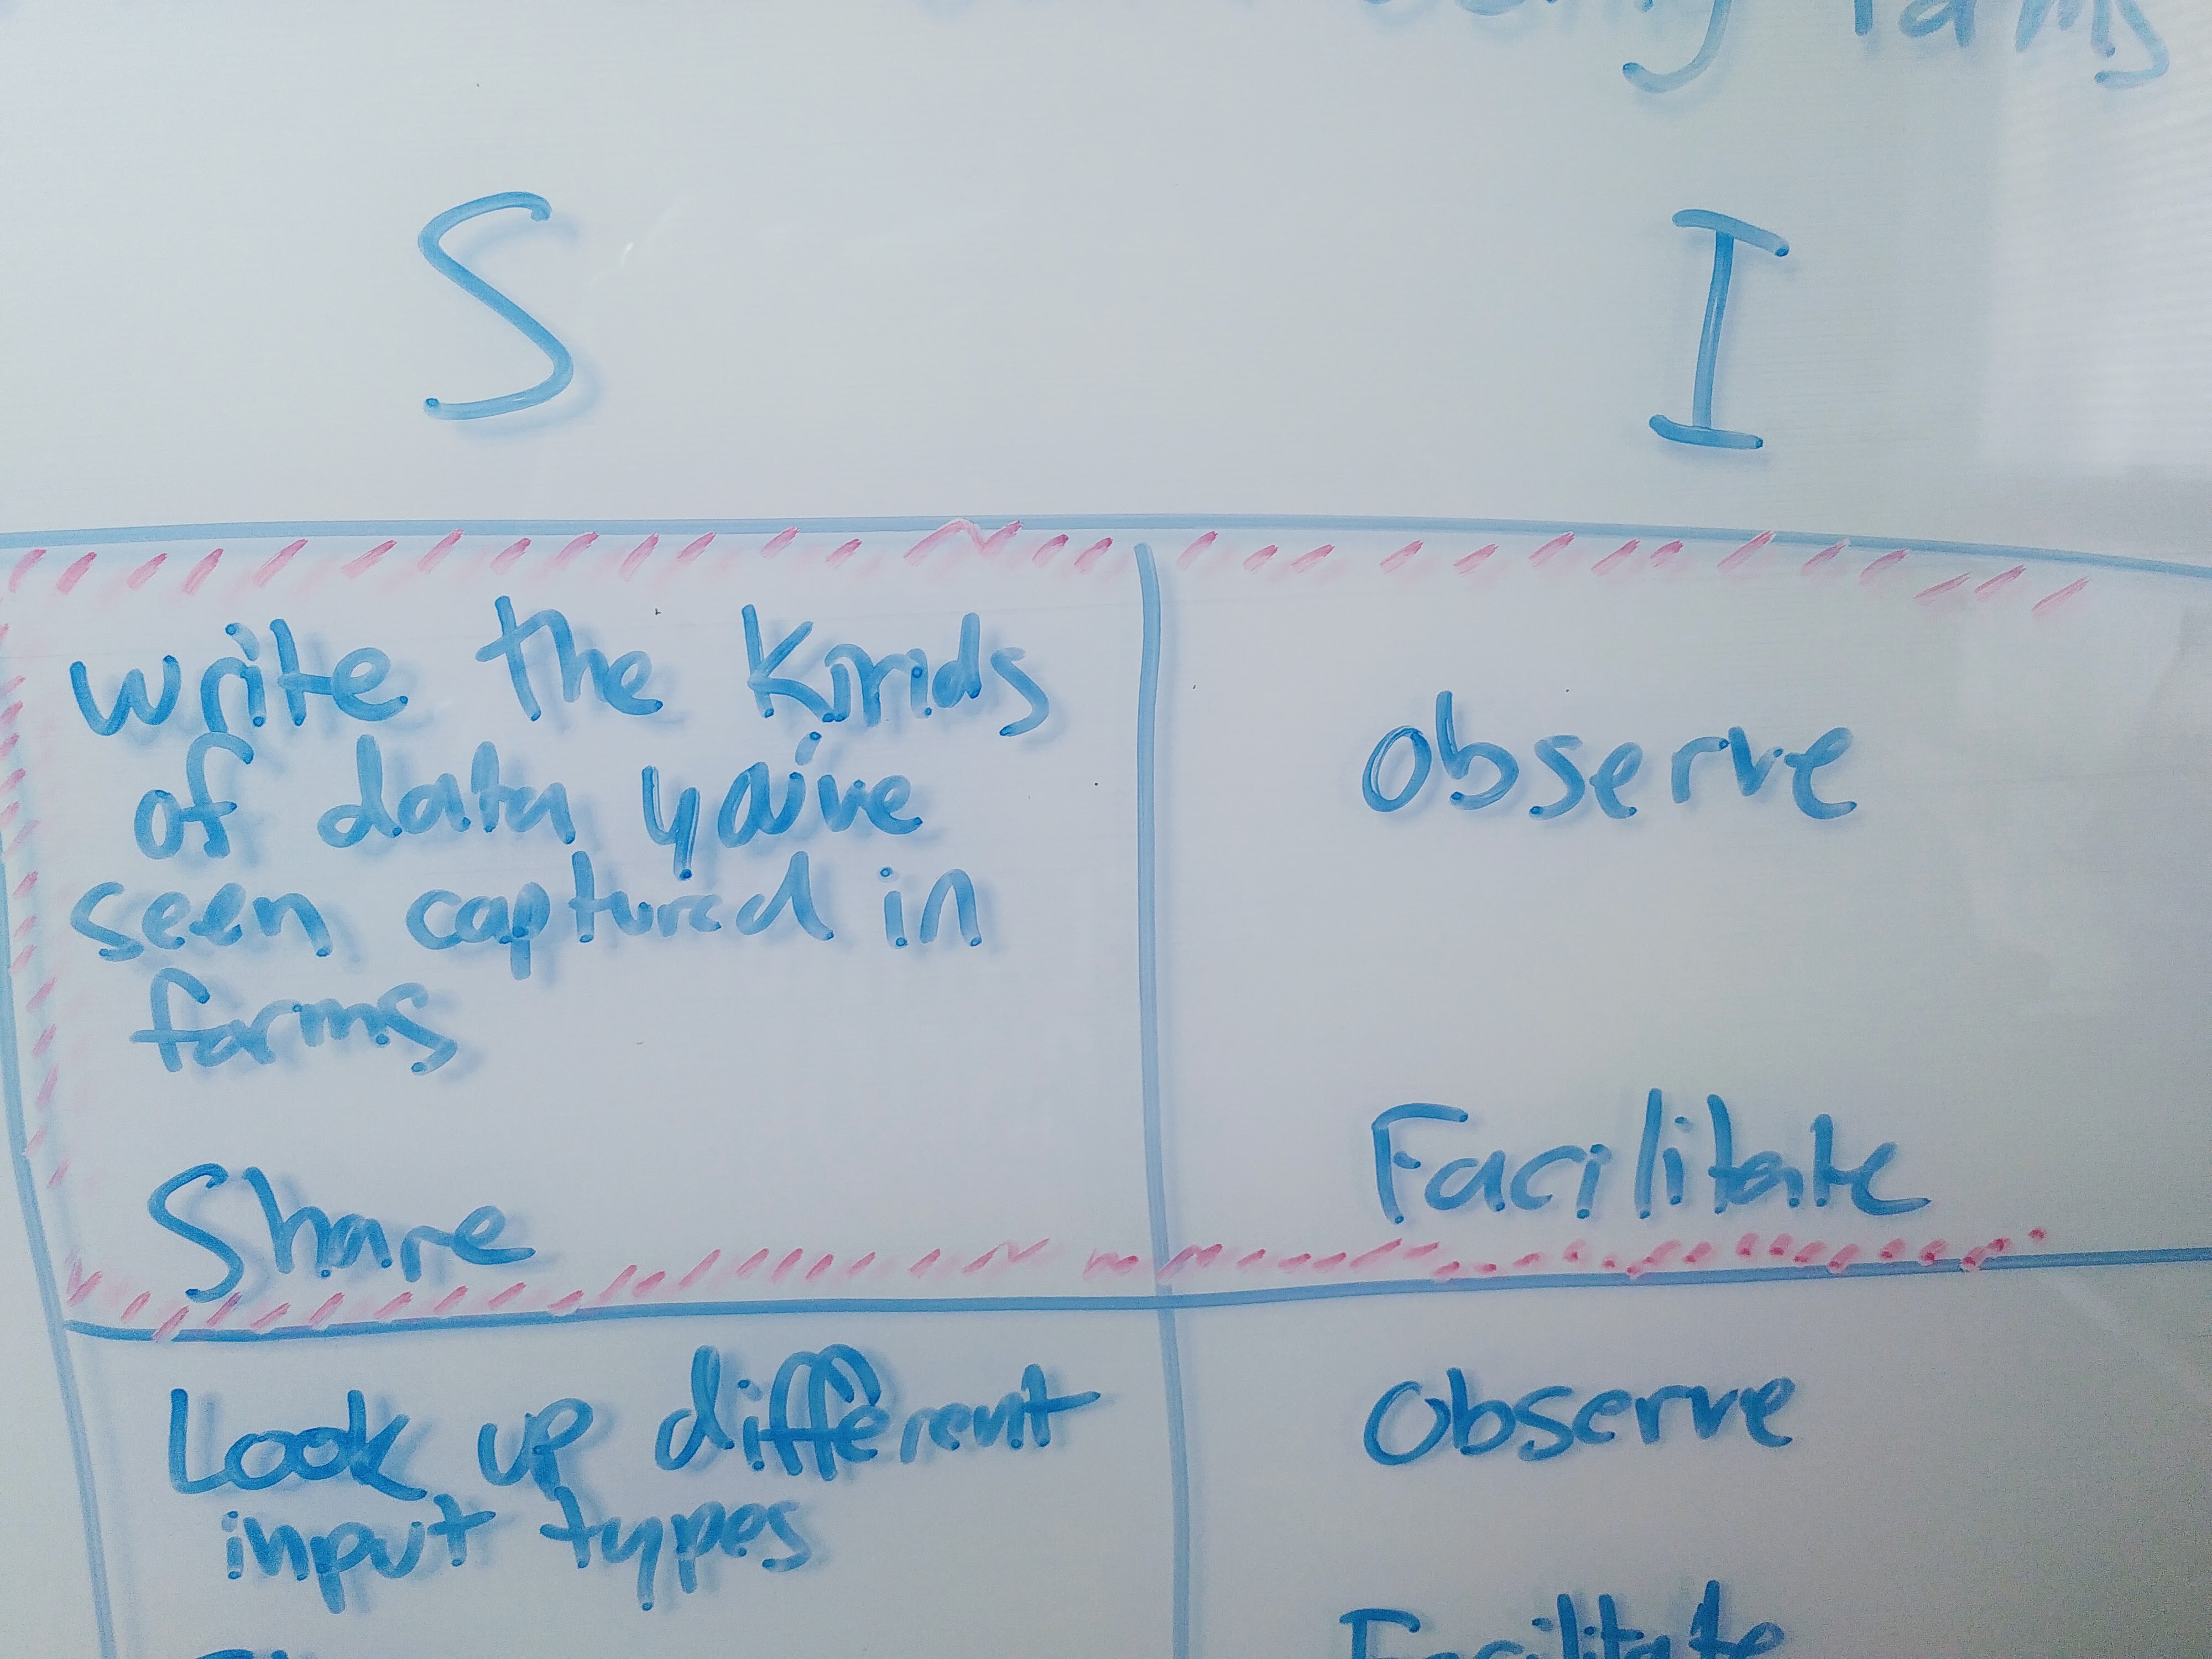 S I
Write the Kinds
of data you've
seen captured in
forms
Observe
Share
Facilitate
Look up different
input types
Observe
Facilitate